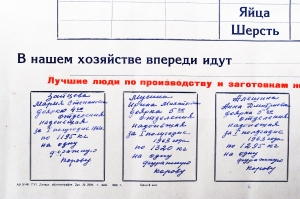 Яйца
Шерсть
В нашем хозяйстве впереди идут
Лучшие люди по производству и заготовкам
Зайцева
Мария Степановна
доярка 4го
отделения
надоившая
за I полугодие
по 1195 кг
на одну
фуражную
корову
Ирина
доярка 5го
отделения
надоившая
за I полугодие
1963 года
по 1320 кг
на одну
фуражную
корову
Анна Дмитриевна
доярка 5го
отделения
надоившая
за I полугодие
1963 года
по 1295 кг
на одну
фуражную
корову